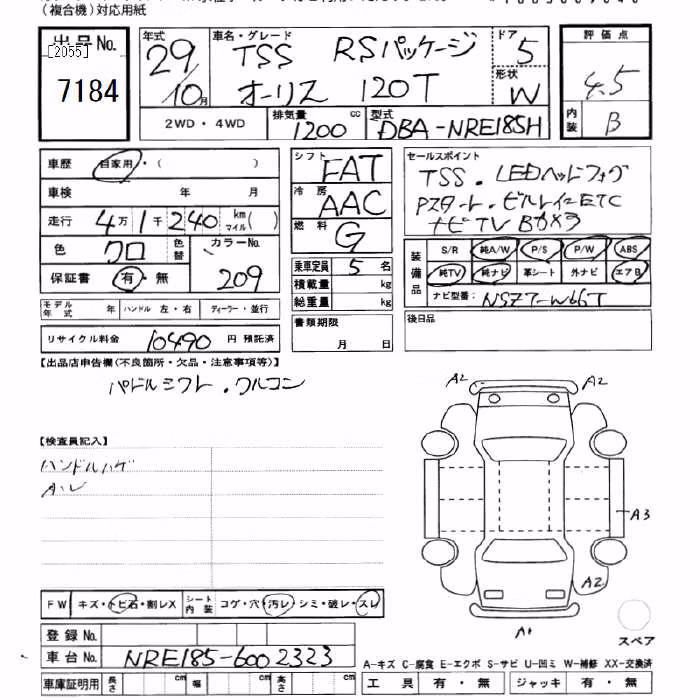 (複合機)対応用紙
出品No.
[2055]
7184
年式 29 10月
車名・グレード TSS RSパッケージ
オーリス 120T
ドア 5
形状 W
評価点 4.5
内装 B
2WD・4WD 排気量 1200 cc 型式 DBA-NRE185H
車歴 自家用・( )
車検 年 月
走行 4万1千240 km マイル( )
色 クロ 色替 カラーNo. 209
保証書 有・無
モデル年式 年 ハンドル 左・右 ディーラー・並行
リサイクル料金 10490 円 預託済
シフト FAT
冷房 AAC
燃料 G
乗車定員 5 名
積載量 kg
総重量 kg
書類期限
月 日
セールスポイント
TSS・LEDヘッドフォグ
Pスタート・ビルトインETC
ナビTV Bカメラ
装備品 S/R 純A/W P/S P/W ABS
純TV 純ナビ 革シート 外ナビ エアB
ナビ型番: NSZT-W66T
後日品
【出品店申告欄(不良箇所・欠品・注意事項等)】
パドルシフト・クルコン
【検査員記入】
ハンドルハゲ
A2 A2
A3
A2
A1
スペア
FW キズ・トビ石・割レX シート内装 コゲ・穴・汚レ・シミ・破レ・スレ
登録No.
車台No. NRE185-6002323
車庫証明用 長さ cm 幅 cm 高さ cm
A-キズ C-腐食 E-エクボ S-サビ U-凹ミ W-補修 XX-交換済
工具 有・無 ジャッキ 有・無